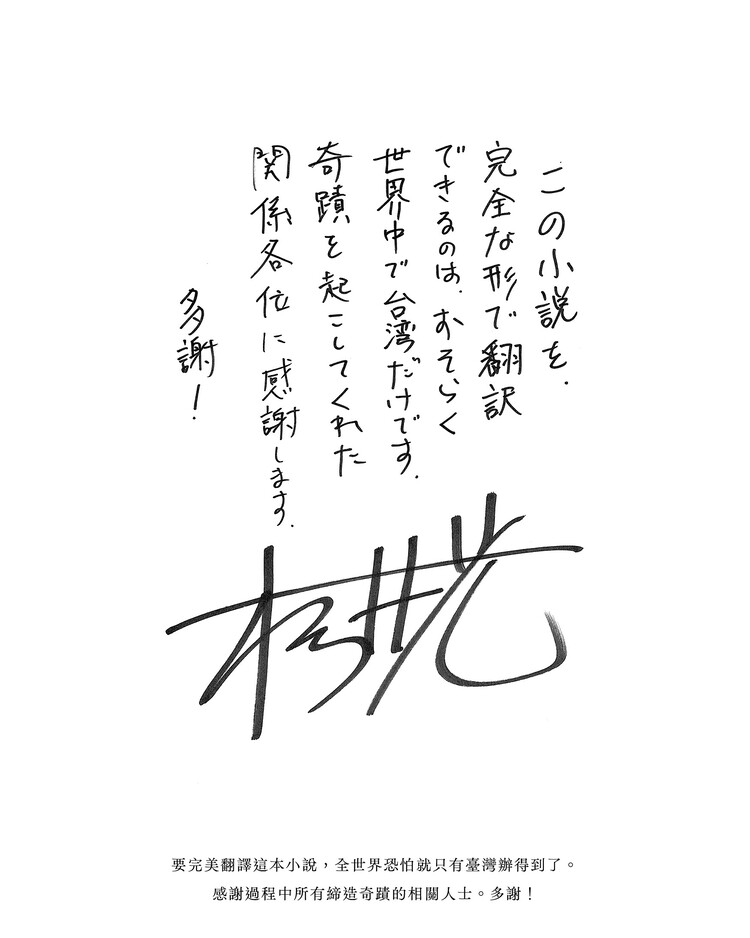 この小説を、
完全な形で翻訳
できるのは、おそらく
世界中で台湾だけです。
奇蹟を起こしてくれた
関係各位に感謝します。
多謝!
要完美翻譯這本小說，全世界恐怕就只有臺灣辦得到了。
感謝過程中所有締造奇蹟的相關人士。多謝！